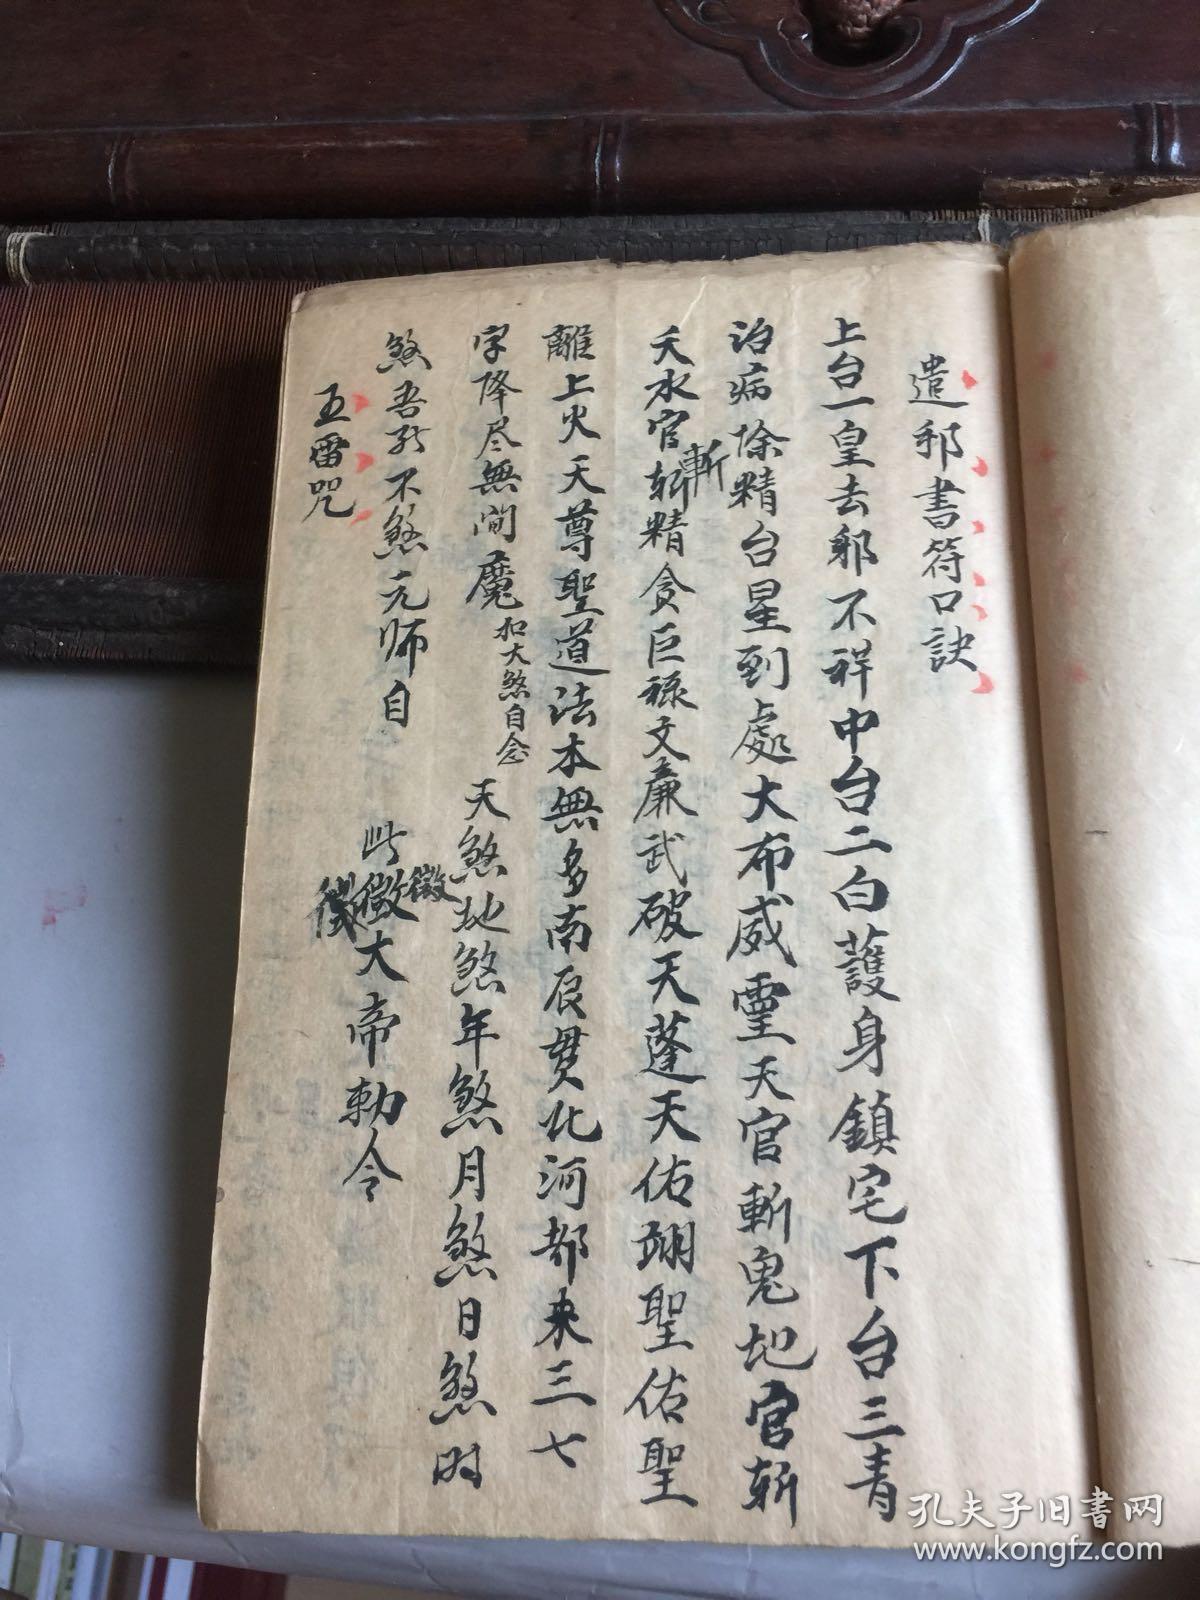 遣邪書符口訣
上台一皇去邪不祥中台二白護身鎮宅下台三青
治病除精台星到處大布威靈天官斬鬼地官斬
夭水官斬斬精貪巨祿文廉武破天蓬天佑翊聖佑聖
離上火天尊聖道法本無多南辰貫北河都來三七
字降尽無间魔和大煞自念天煞地煞年煞月煞日煞时
煞吾不煞元师自 此徵徵徵大帝勅令
五雷咒
孔夫子旧书网
www.kongfz.com